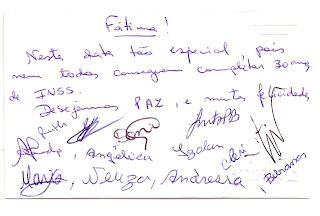 Fátima!
Nesta data tão especial, pois
nem todos conseguem completar 30 ang
de INSS.
Desejamos PAZ, e muitas felicidades
Angélica
Neuza, Andressa